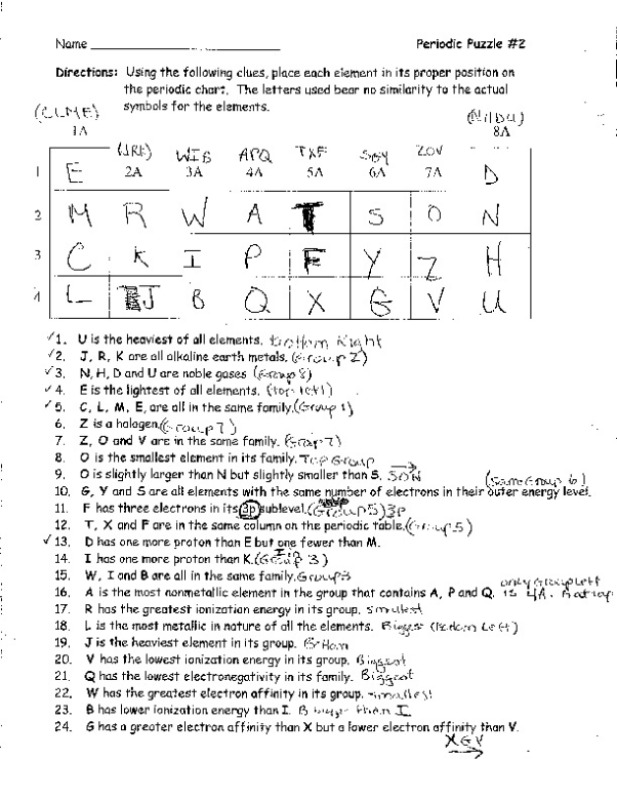 Name
Periodic Puzzle #2
Directions: Using the following clues, place each element in its proper position on
the periodic chart. The letters used bear no similarity to the actual
symbols for the elements.
(CLME)
(NHDU)
1A
8A
(JRK) WIB APQ TXF SGY ZOV
2A 3A 4A 5A 6A 7A
1 E D
2 M R W A T S O N
3 C K I P F Y Z H
4 L J B Q X G V U
✓1. U is the heaviest of all elements. Bottom Right
✓2. J, R, K are all alkaline earth metals. (Group 2)
✓3. N, H, D and U are noble gases (Group 8)
✓4. E is the lightest of all elements. (top left)
✓5. C, L, M, E, are all in the same family. (Group 1)
6. Z is a halogen. (Group 7)
7. Z, O and V are in the same family. (Group 7)
8. O is the smallest element in its family. Top Group
9. O is slightly larger than N but slightly smaller than S. SON
(Same Group 6)
10. G, Y and S are all elements with the same number of electrons in their outer energy level.
11. F has three electrons in its 3p sublevel. (Group 5) 3p
12. T, X and F are in the same column on the periodic table. (Group 5)
✓13. D has one more proton than E but one fewer than M.
14. I has one more proton than K. (Group 3)
15. W, I and B are all in the same family. Group 3
only Group left
16. A is the most nonmetallic element in the group that contains A, P and Q. is 4A. A at top
17. R has the greatest ionization energy in its group. smallest
18. L is the most metallic in nature of all the elements. Biggest (Bottom Left)
19. J is the heaviest element in its group. Bottom
20. V has the lowest ionization energy in its group. Biggest
21. Q has the lowest electronegativity in its family. Biggest
22. W has the greatest electron affinity in its group. smallest
23. B has lower ionization energy than I. B bigger than I
24. G has a greater electron affinity than X but a lower electron affinity than V.
XGV